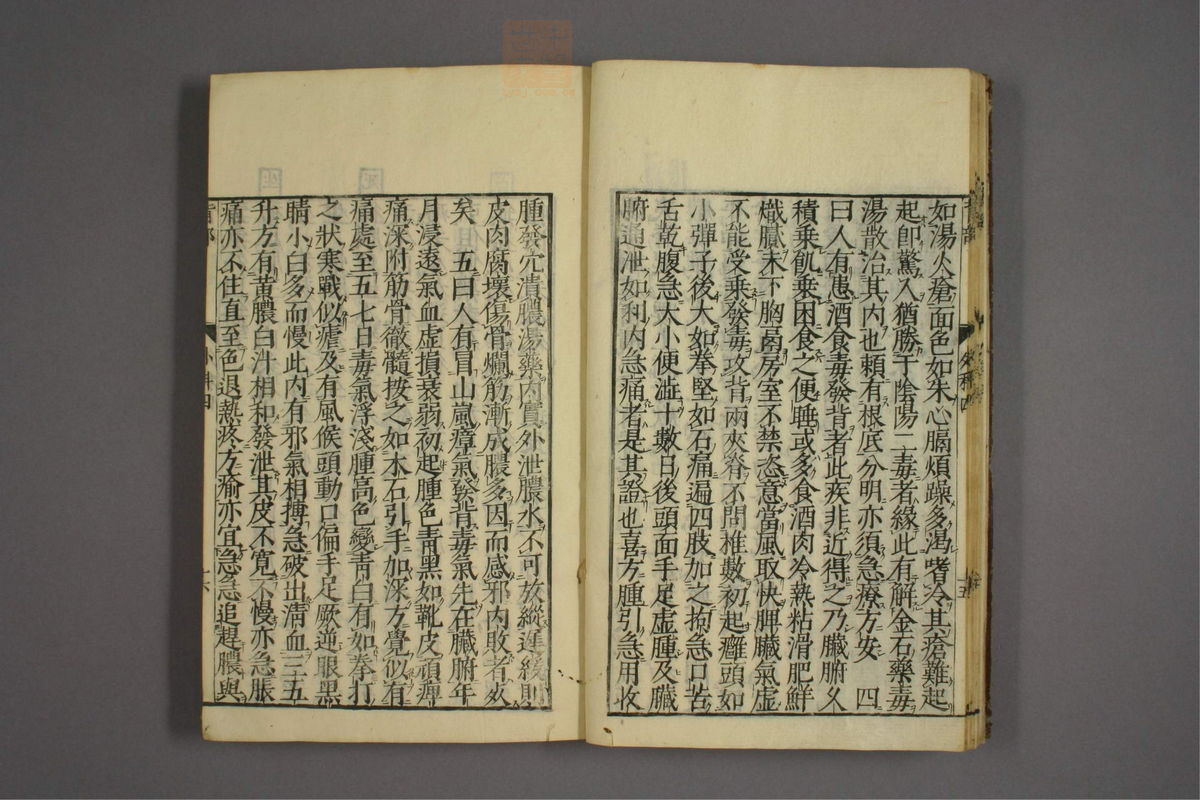 如湯火瘡面色如朱心膈煩躁多渴嗜冷其瘡難起
起即驚人猶勝于陰陽二毒者緣此有解金石藥毒
湯散治其内也頼有根底分明亦須急療方安　四
曰人有患酒食毒發背者此疾非近得之乃臓腑久
積乗飢乗困食之便睡或多食酒肉冷熱粘滑肥鮮
熾膩未下胸鬲房室不禁恣意當風取快脾臓氣虚
不能受乗發毒攻背兩夾脊不問椎數初起癰頭如
小彈子後大如拳堅如石痛遍四肢加之拘急口苦
舌乾腹急大小便澁十數日後頭面手足虚腫及臓
腑通泄如利内急痛者是其證也喜方腫引急用收
腫發穴潰膿湯藥内實外泄膿水不可放縱遲緩則
皮肉腐壞傷骨爛筋漸成膿多因而感邪内敗者
矣　五曰人有冒山嵐瘴氣發背毒氣先在臓腑年
月浸遠氣血虚損衰弱初起腫色青黑如靴皮頑痺
痛深附筋骨徹髓按之如木石引手加深方覺似有
痛處至五七日毒氣浮淺腫高色變青白有如拳打
之狀寒戰似瘧及有風候頭動口偏手足厥逆眼黒
睛小白多而慢此内有邪氣相搏急破出清血三五
升方有黄膿白汁相和發泄其皮不寛不慢亦急脹
痛亦不住直至色退熱疼方瘉亦宜急急追趕膿與